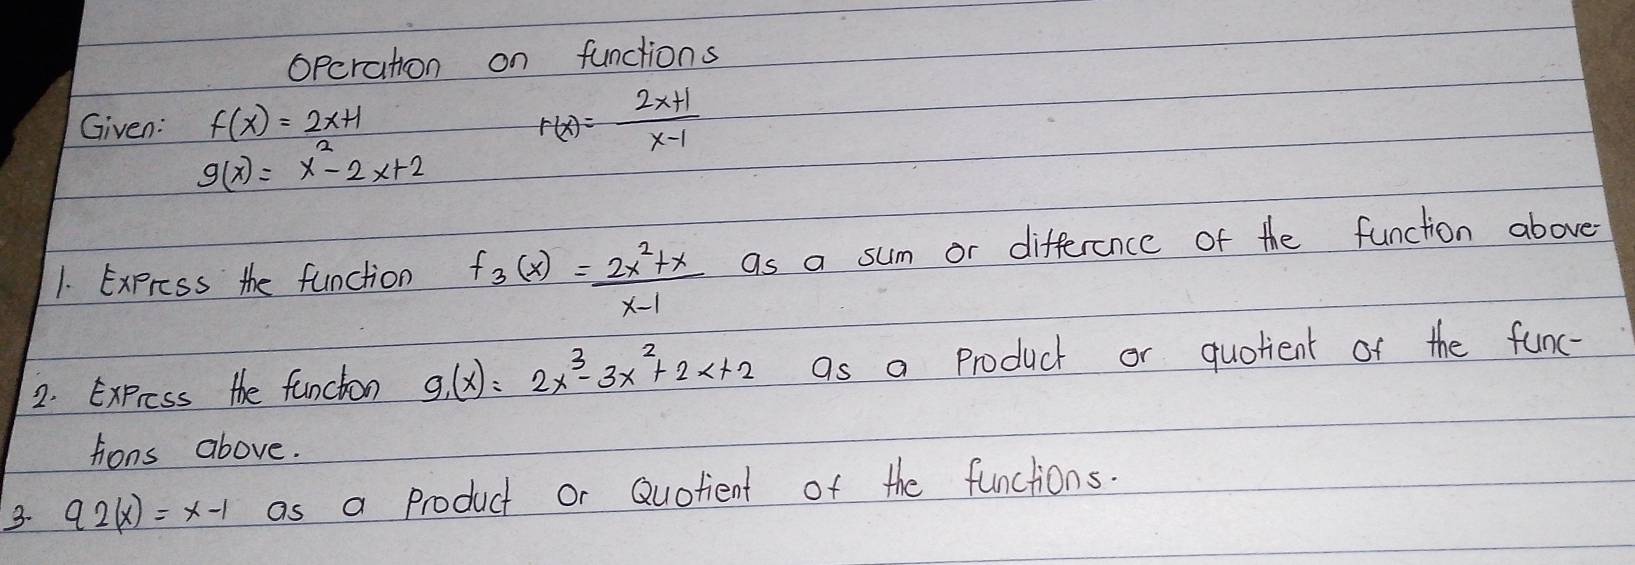 Operation on functions
Given: f(x) = 2x+1 r(x) = 2x+1/x-1
g(x) = x²-2x+2
1. Express the function f₃(x) = 2x²+x/x-1 as a sum or difference of the function above
2. Express the functon g₁(x): 2x³-3x²+2x+2 as a Product or quotient of the func-
tions above.
3. g2(x) = x-1 as a Product or Quotient of the functions.